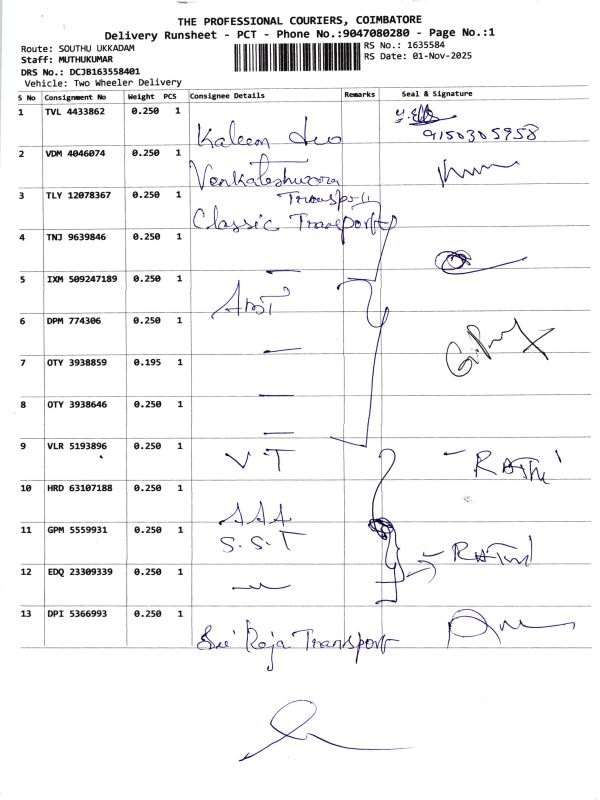 THE PROFESSIONAL COURIERS, COIMBATORE
Delivery Runsheet - PCT - Phone No.:9047080280 - Page No.:1
Route: SOUTHU UKKADAM
RS No.: 1635584
Staff: MUTHUKUMAR
RS Date: 01-Nov-2025
DRS No.: DCJB163558401
Vehicle: Two Wheeler Delivery
S No Consignment No Weight PCS Consignee Details Remarks Seal & Signature
1 TVL 4433862 0.250 1 Kaleem
9150305958
2 VDM 4046074 0.250 1 Venkateshwara
Transport
3 TLY 12078367 0.250 1 Classic Transport
4 TNJ 9639846 0.250 1 —
5 IXM 509247189 0.250 1
6 DPM 774306 0.250 1 —
7 OTY 3938859 0.195 1 —
8 OTY 3938646 0.250 1 —
9 VLR 5193896 0.250 1 V.T - RATHI
10 HRD 63107188 0.250 1 AAA
11 GPM 5559931 0.250 1 S.S.T
12 EDQ 23309339 0.250 1
13 DPI 5366993 0.250 1 Sri Roja Transport